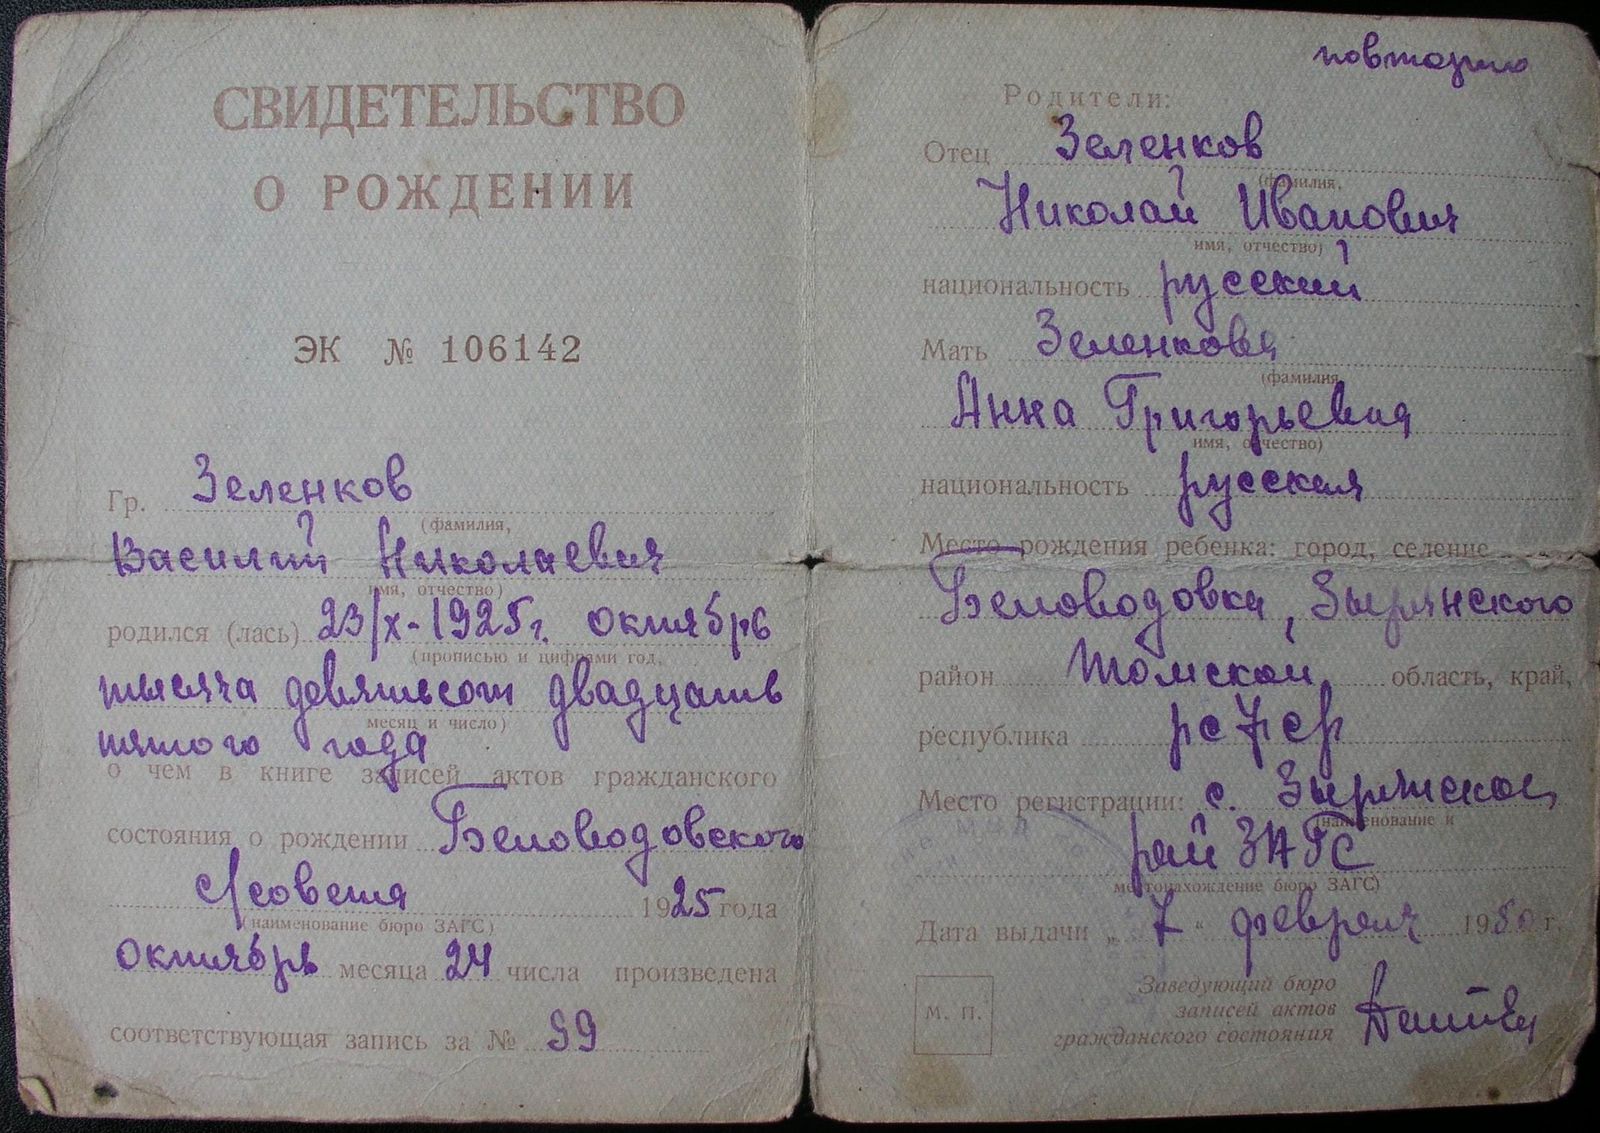 СВИДЕТЕЛЬСТВО
О РОЖДЕНИИ
ЭК № 106142
Гр. Зеленков
(фамилия,
Василий Николаевич
имя, отчество)
родился (лась) 23/X-1925г. октябрь
(прописью и цифрами год,
тысяча девятьсот двадцать
месяц и число)
пятого года
о чем в книге записей актов гражданского
состояния о рождении Беловодовского
с/совета 1925 года
(наименование бюро ЗАГС)
октябрь месяца 24 числа произведена
соответствующая запись за № 99
повторно
Родители:
Отец Зеленков
(фамилия,
Николай Иванович
имя, отчество)
национальность русский
Мать Зеленкова
(фамилия,
Анна Григорьевна
имя, отчество)
национальность русская
Место рождения ребенка: город, селение
Беловодовка, Зырянского
район Томской область, край,
республика рсфср
Место регистрации: с. Зырянское
(наименование и
рай ЗАГС
местонахождение бюро ЗАГС)
Дата выдачи „ 7 “ февраля 1950 г.
М. П.
Заведующий бюро
записей актов
гражданского состояния